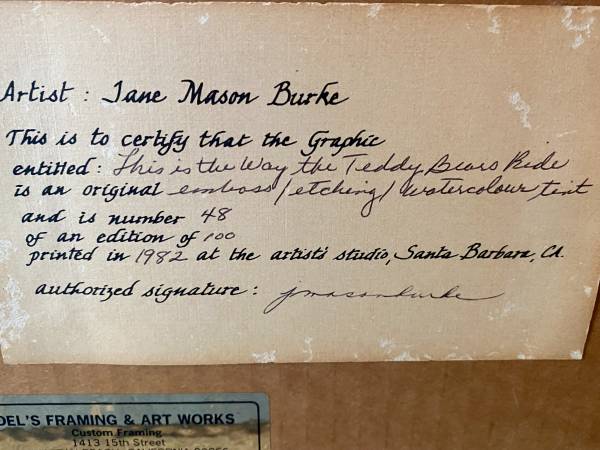 Artist: Jane Mason Burke
This is to certify that the Graphic
entitled: This is the Way the Teddy Bears Ride
is an original emboss/etching/watercolour tint
and is number 48
of an edition of 100
printed in 1982 at the artist's studio, Santa Barbara, CA.
authorized signature: jmasonburke
DEL'S FRAMING & ART WORKS
Custom Framing
1413 15th Street